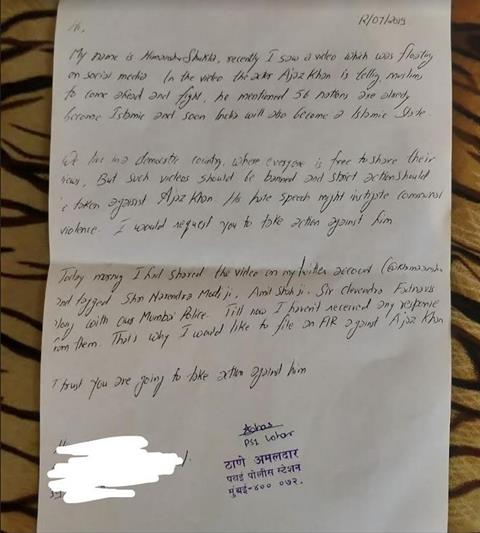 12/07/2019
Hi,
My name is Himanshu Shukla, recently I saw a video which was floating
on social media. In the video the actor Ajaz Khan is telling muslims
to come ahead and fight, he mentioned 56 nations are already
become Islamic and soon India will also become a Islamic State.
We live in a democratic country, where everyone is free to share their
views, But such videos should be banned and strict action should
be taken against Ajaz Khan. His hate speech might instigate communal
violence. I would request you to take action against him
Today morning I had shared the video on my twitter account
and tagged Shri Narendra Modi ji, Amit Shah ji, Sir devendra Fadnavis
along with our Mumbai Police. Till now I haven't received any response
from them. That's why I would like to file an FIR against Ajaz Khan
I trust you are going to take action against him
PSI
ठाणे अमलदार
पवई पोलीस स्टेशन
मुंबई-४०० ०७२.